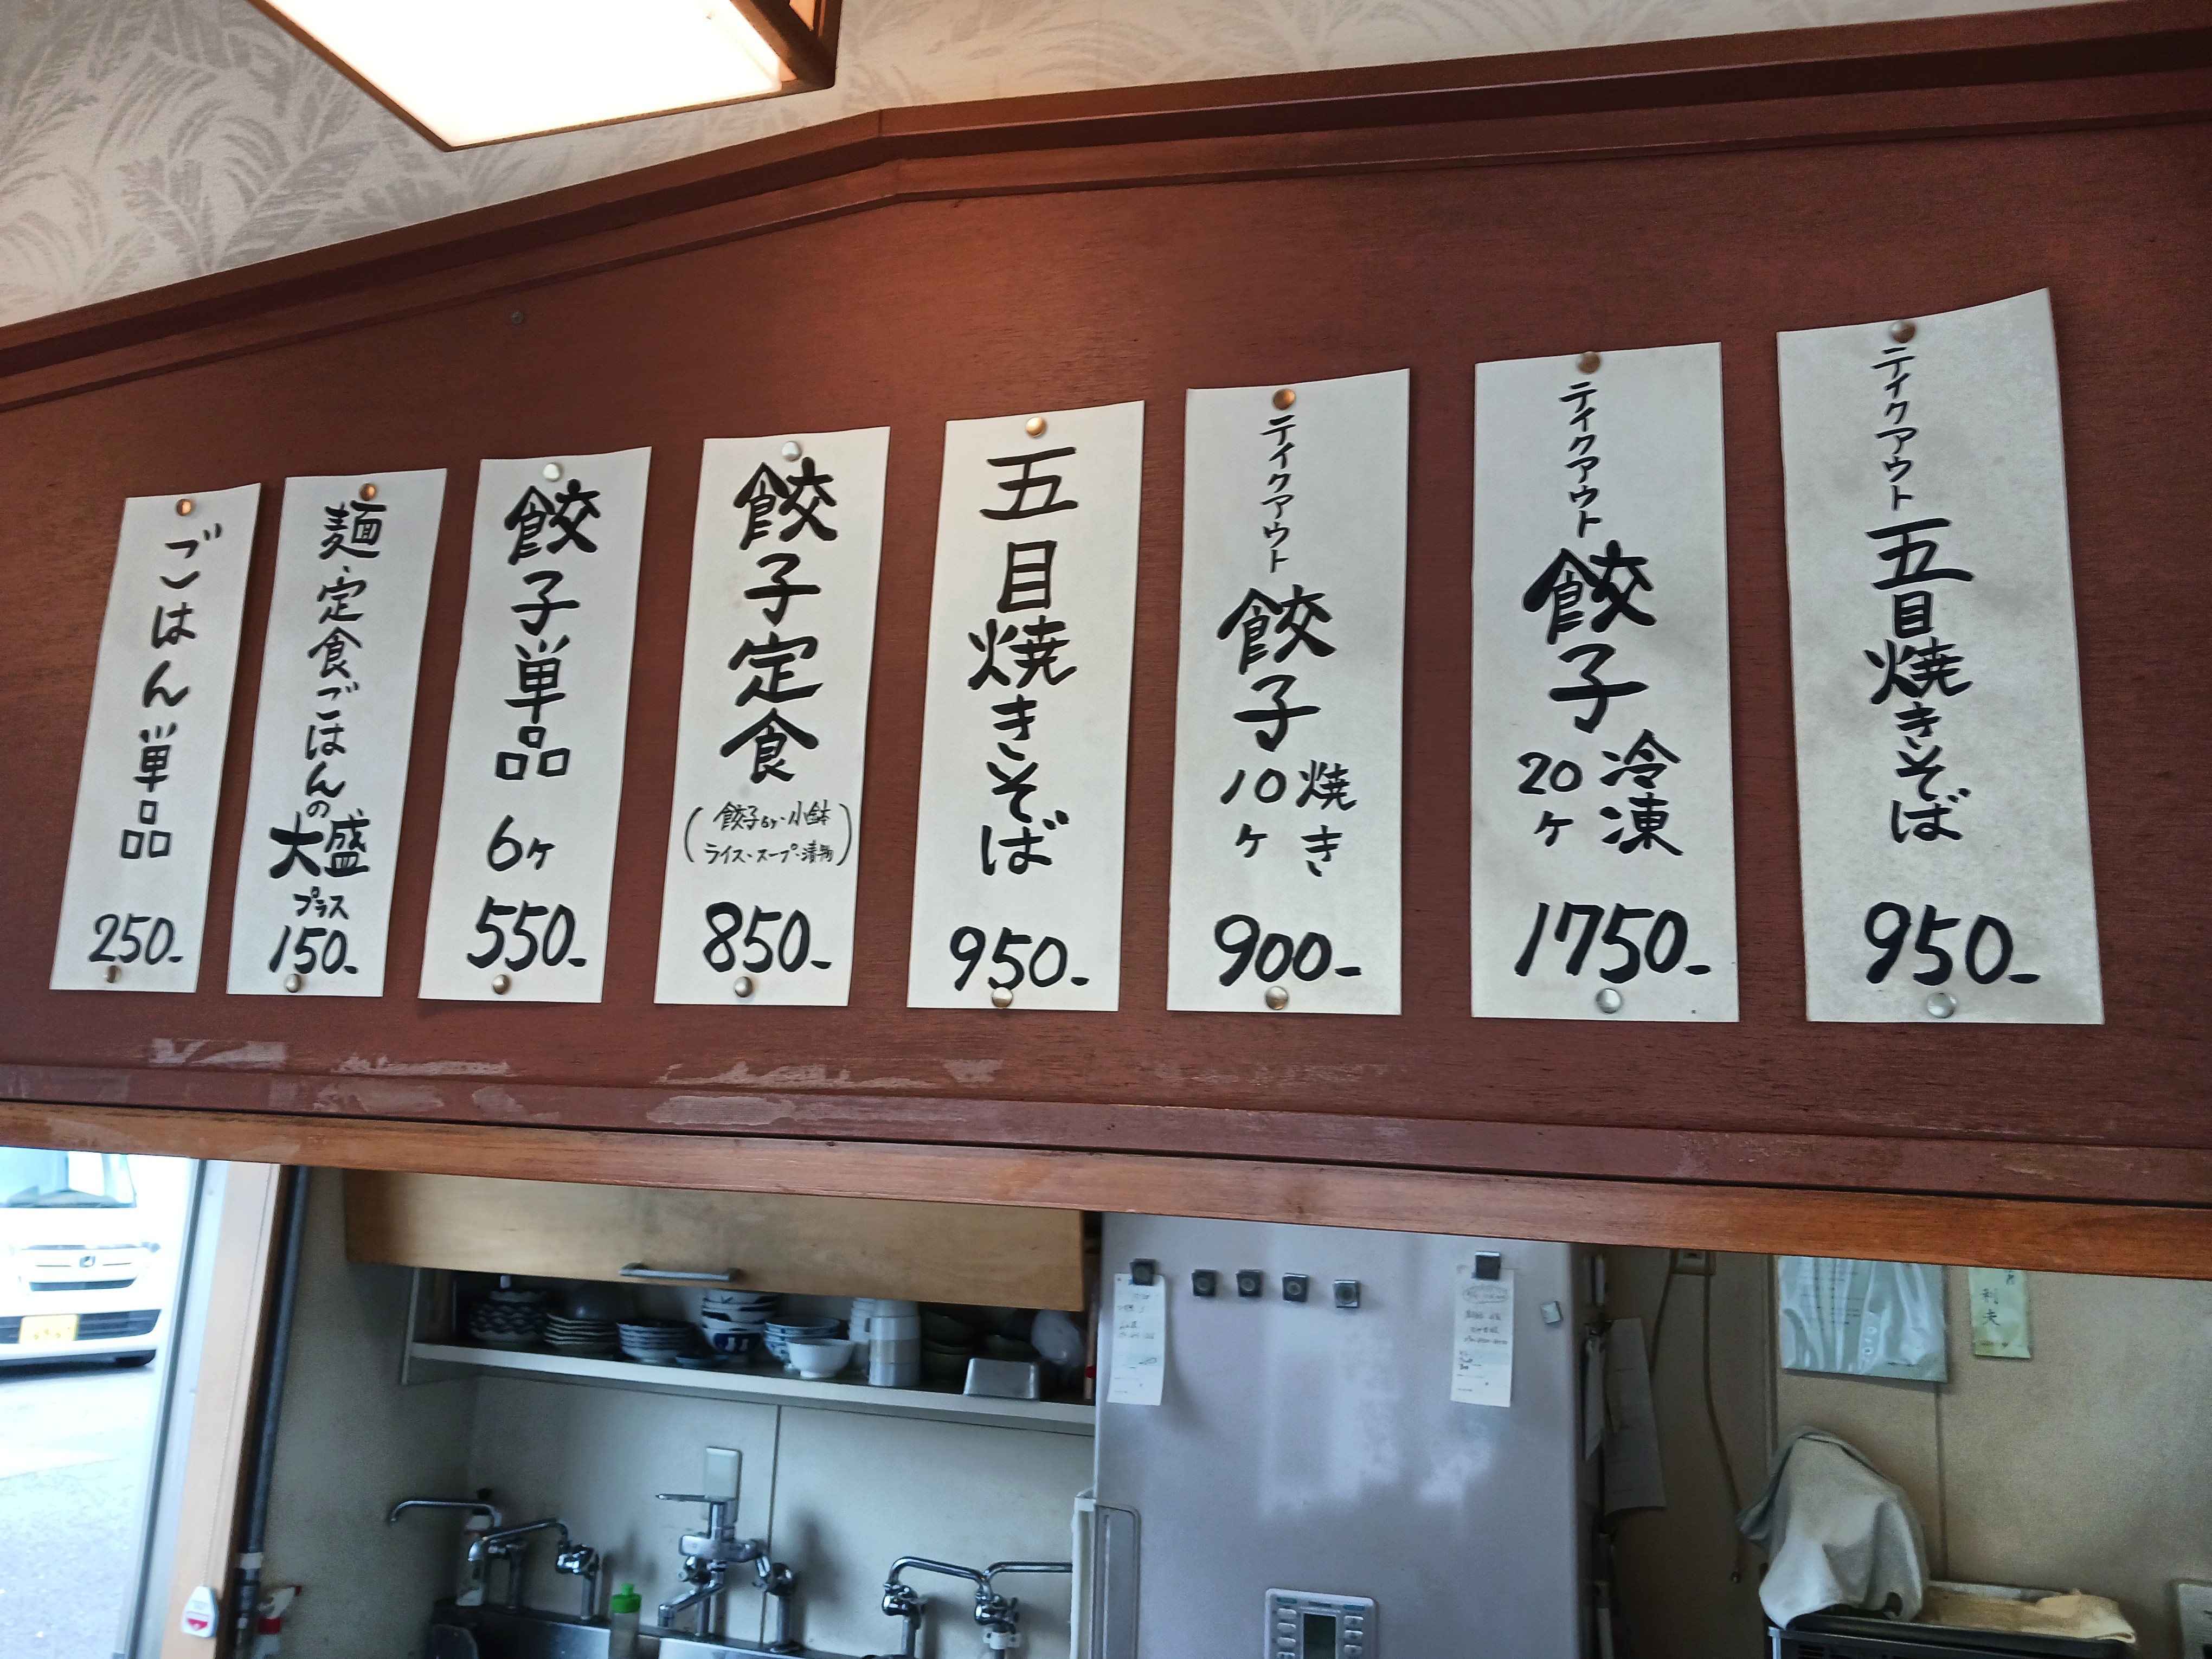 テイクアウト五目焼きそば
950-
テイクアウト餃子
冷凍
20ヶ
1750-
テイクアウト餃子
焼き
10ヶ
900-
五目焼きそば
950-
餃子定食
(餃子6ヶ・小鉢
ライス・スープ・漬物)
850-
餃子単品
6ヶ
550-
麺・定食ごはんの
大盛
プラス
150-
ごはん単品
250-
利夫